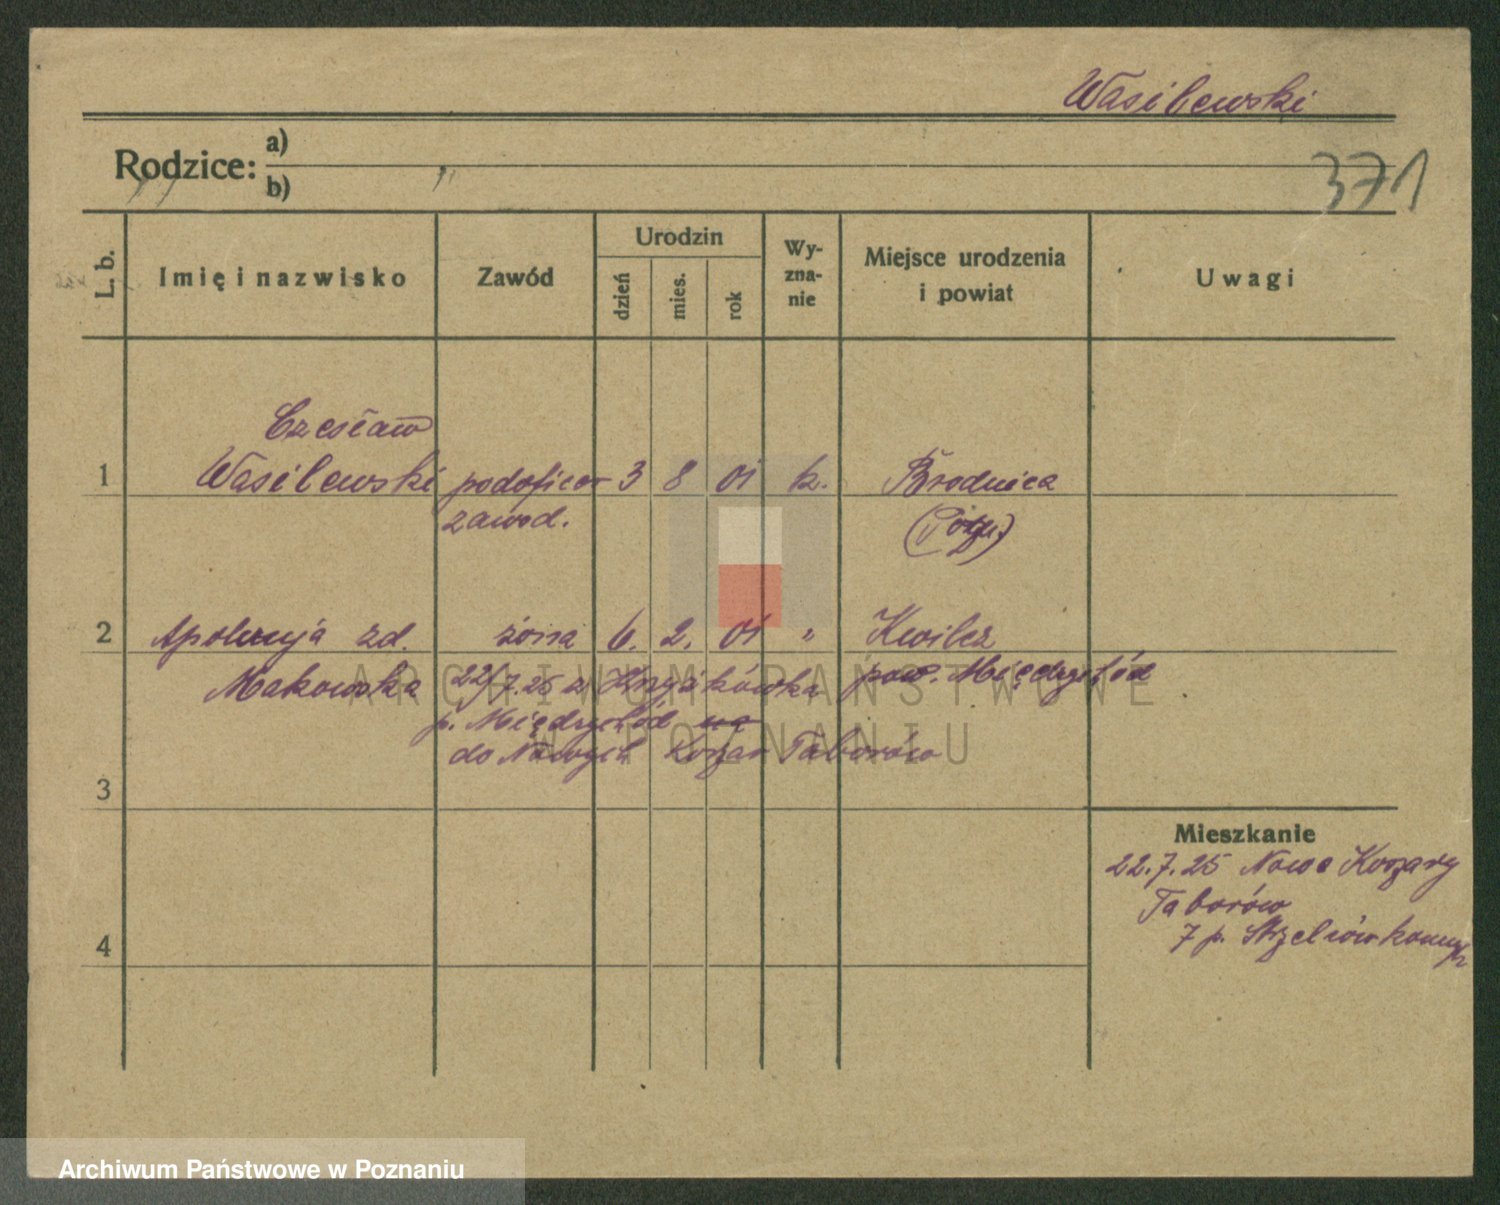 Wasilewski
Rodzice: a)
b)
371
L. b.
Imię i nazwisko
Zawód
Urodzin
dzień
mies.
rok
Wy-
zna-
nie
Miejsce urodzenia
i powiat
Uwagi
Czesław
1 Wasilewski podoficer 3 8 01 k. Brodnica
zawod.
2 Apolonja zd. żona 6. 2. 01 " Kwilcz
Makowska 22/7.25 z pow. Międzychód
p. Międzychód na
do Nowych Koszar Taborów
3
4
Mieszkanie
22.7.25 Nowe Koszary
Taborów
7 p. Strzelców konnych
ARCHIWUM PAŃSTWOWE
W POZNANIU
Archiwum Państwowe w Poznaniu